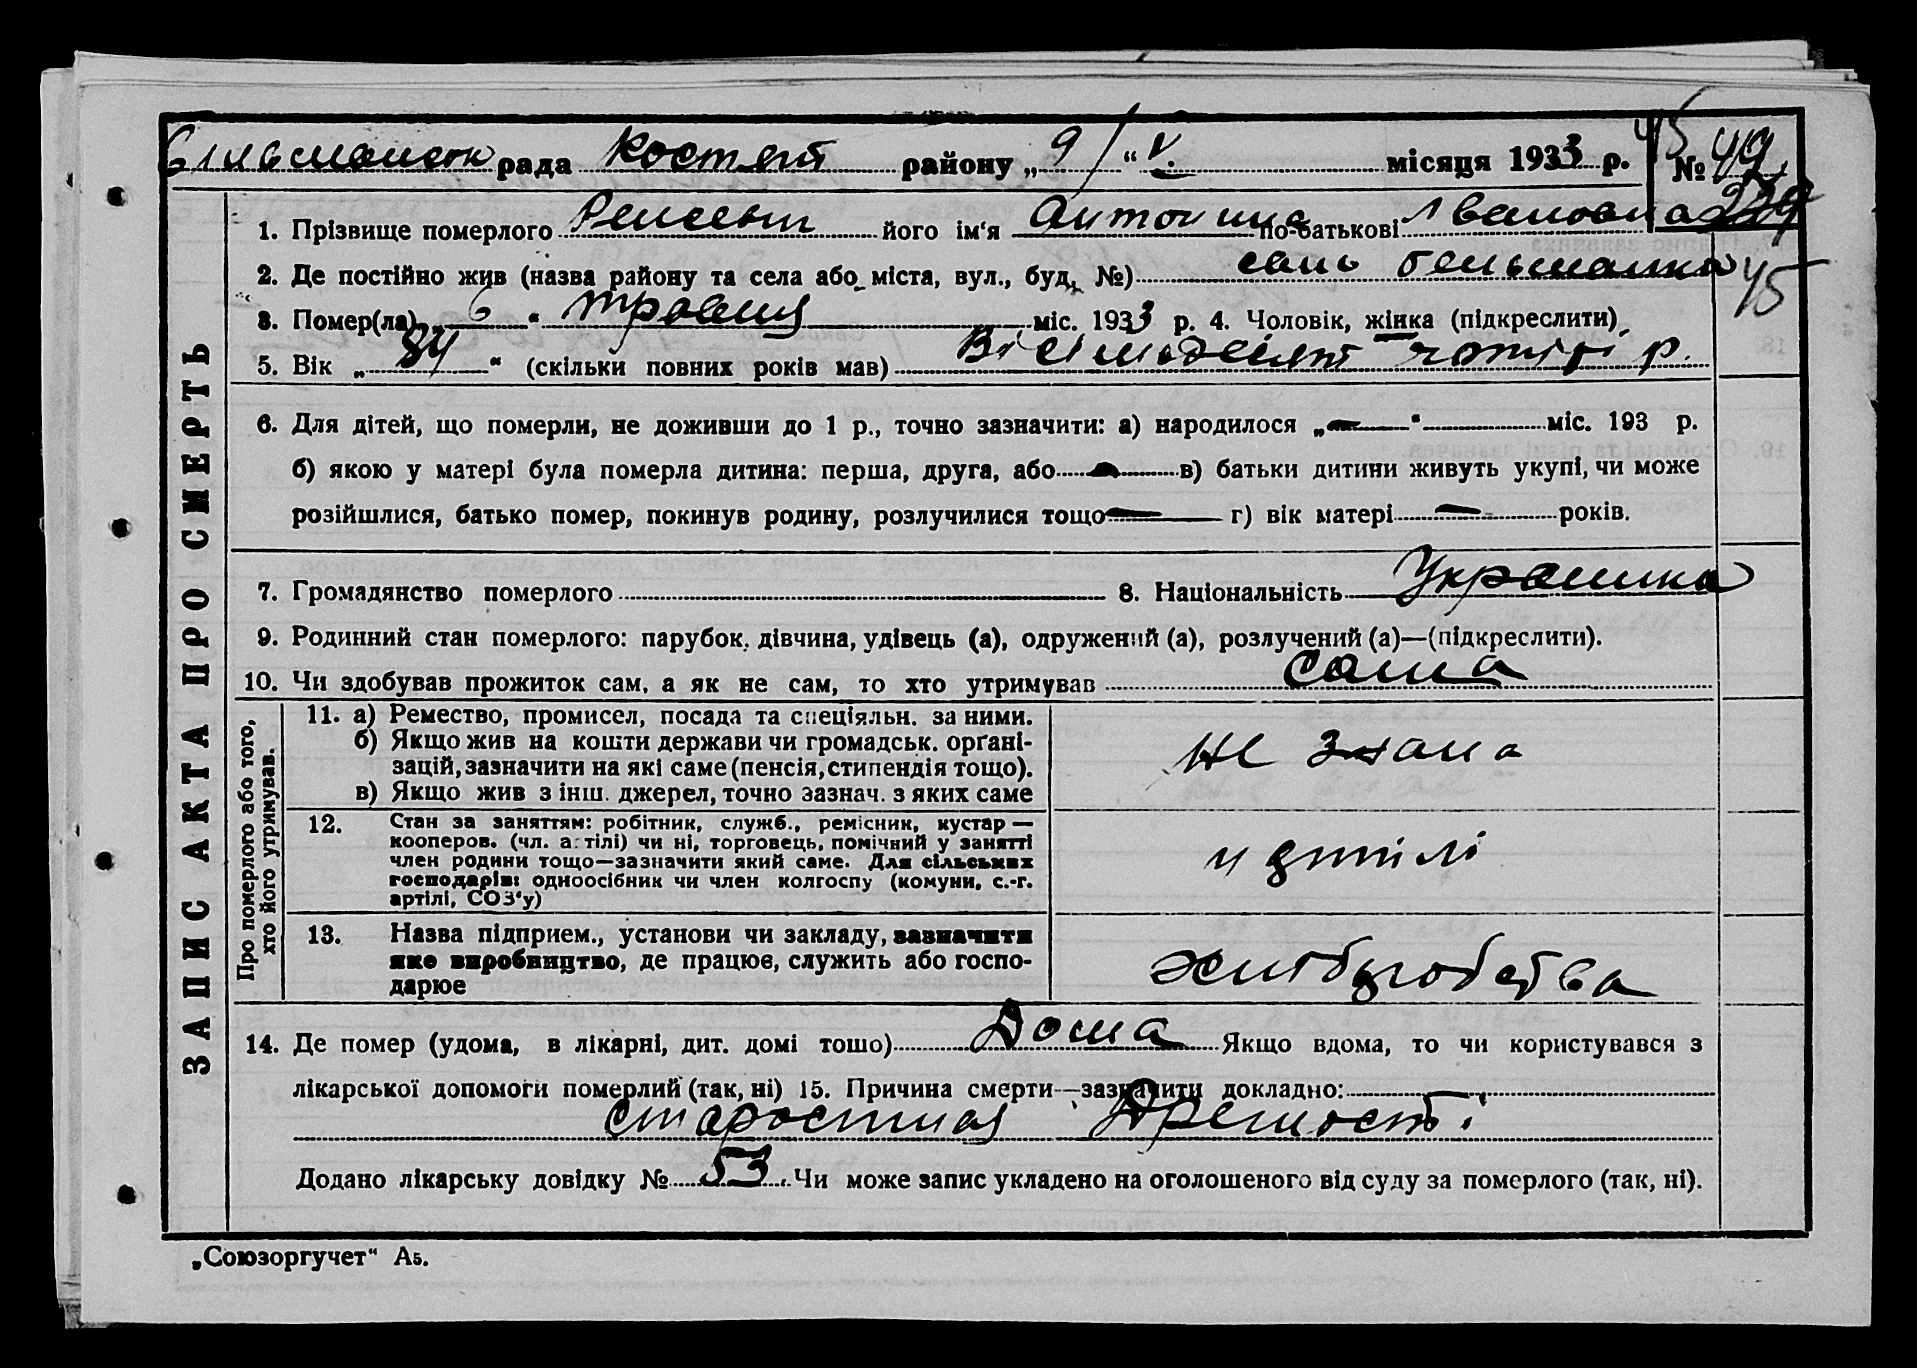 рада Костян району „ 9 / " V. місяця 1933 р. 45 № 49
239
1. Прізвище померлого його ім'я Антонина по батькові Івановна
2. Де постійно жив (назва району та села або міста, вул., буд, №) село Гельманка
45
3. Помер(ла) „ 6 " травня міс. 1933 р. 4. Чоловік, жінка (підкреслити)
5. Вік „ 84 " (скільки повних років мав) Вісімдесят чотирі р.
6. Для дітей, що померли, не доживши до 1 р., точно зазначити: а) народилося „ — " міс. 193 р.
б) якою у матері була померла дитина: перша, друга, або — в) батьки дитини живуть укупі, чи може
розійшлися, батько помер, покинув родину, розлучилися тощо — г) вік матері — років.
7. Громадянство померлого 8. Національність Украинка
9. Родинний стан померлого: парубок, дівчина, удівець (а), одружений (а), розлучений (а)—(підкреслити).
10. Чи здобував прожиток сам, а як не сам, то хто утримував сама
Про померлого або того, хто його утримував.
11. а) Ремество, промисел, посада та спеціяльн. за ними.
б) Якщо жив на кошти держави чи громадськ. орґані-
зацій, зазначити на які саме (пенсія, стипендія тощо).
в) Якщо жив з інш. джерел, точно зазнач. з яких саме
не знана
12. Стан за заняттям: робітник, служб., ремісник, кустар —
кооперов. (чл. артілі) чи ні, торговець, помічний у занятті
член родини тощо—зазначити який саме. Для сільських
господарів: одноосібник чи член колгоспу (комуни, с.-г.
артілі, СОЗ'у)
13. Назва підприєм., установи чи закладу, зазначити
яке виробництво, де працює, служить або госпо-
дарює
14. Де помер (удома, в лікарні, дит. домі тошо) Дома Якщо вдома, то чи користувався з
лікарської допомоги померлий (так, ні) 15. Причина смерти—зазначити докладно:
старостная Дремості
Додано лікарську довідку № 53 Чи може запис укладено на оголошеного від суду за померлого (так, ні).
ЗАПИС АКТА ПРО СМЕРТЬ
„Союзоргучет" А5.